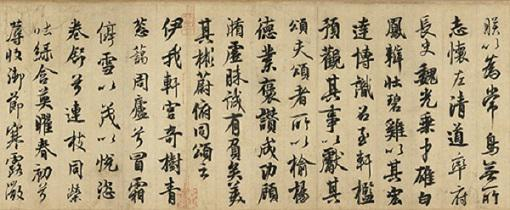 朕以為常鳥無所
志懷左清道率府
長史魏光乘才雄白
鳳辯壯碧雞以其宏
達博識召至軒檻
預觀其事以獻其
頌夫頌者所以揄揚
德業褒讚成功顧
循虛昧誠有負矣美
其彬蔚俯同頌云
伊我軒宮奇樹青
蔥藹周廬兮冒霜
停雪以茂以悅恣
卷舒兮連枝同榮
吐綠含英曜春初兮
蓐收御節寒露微